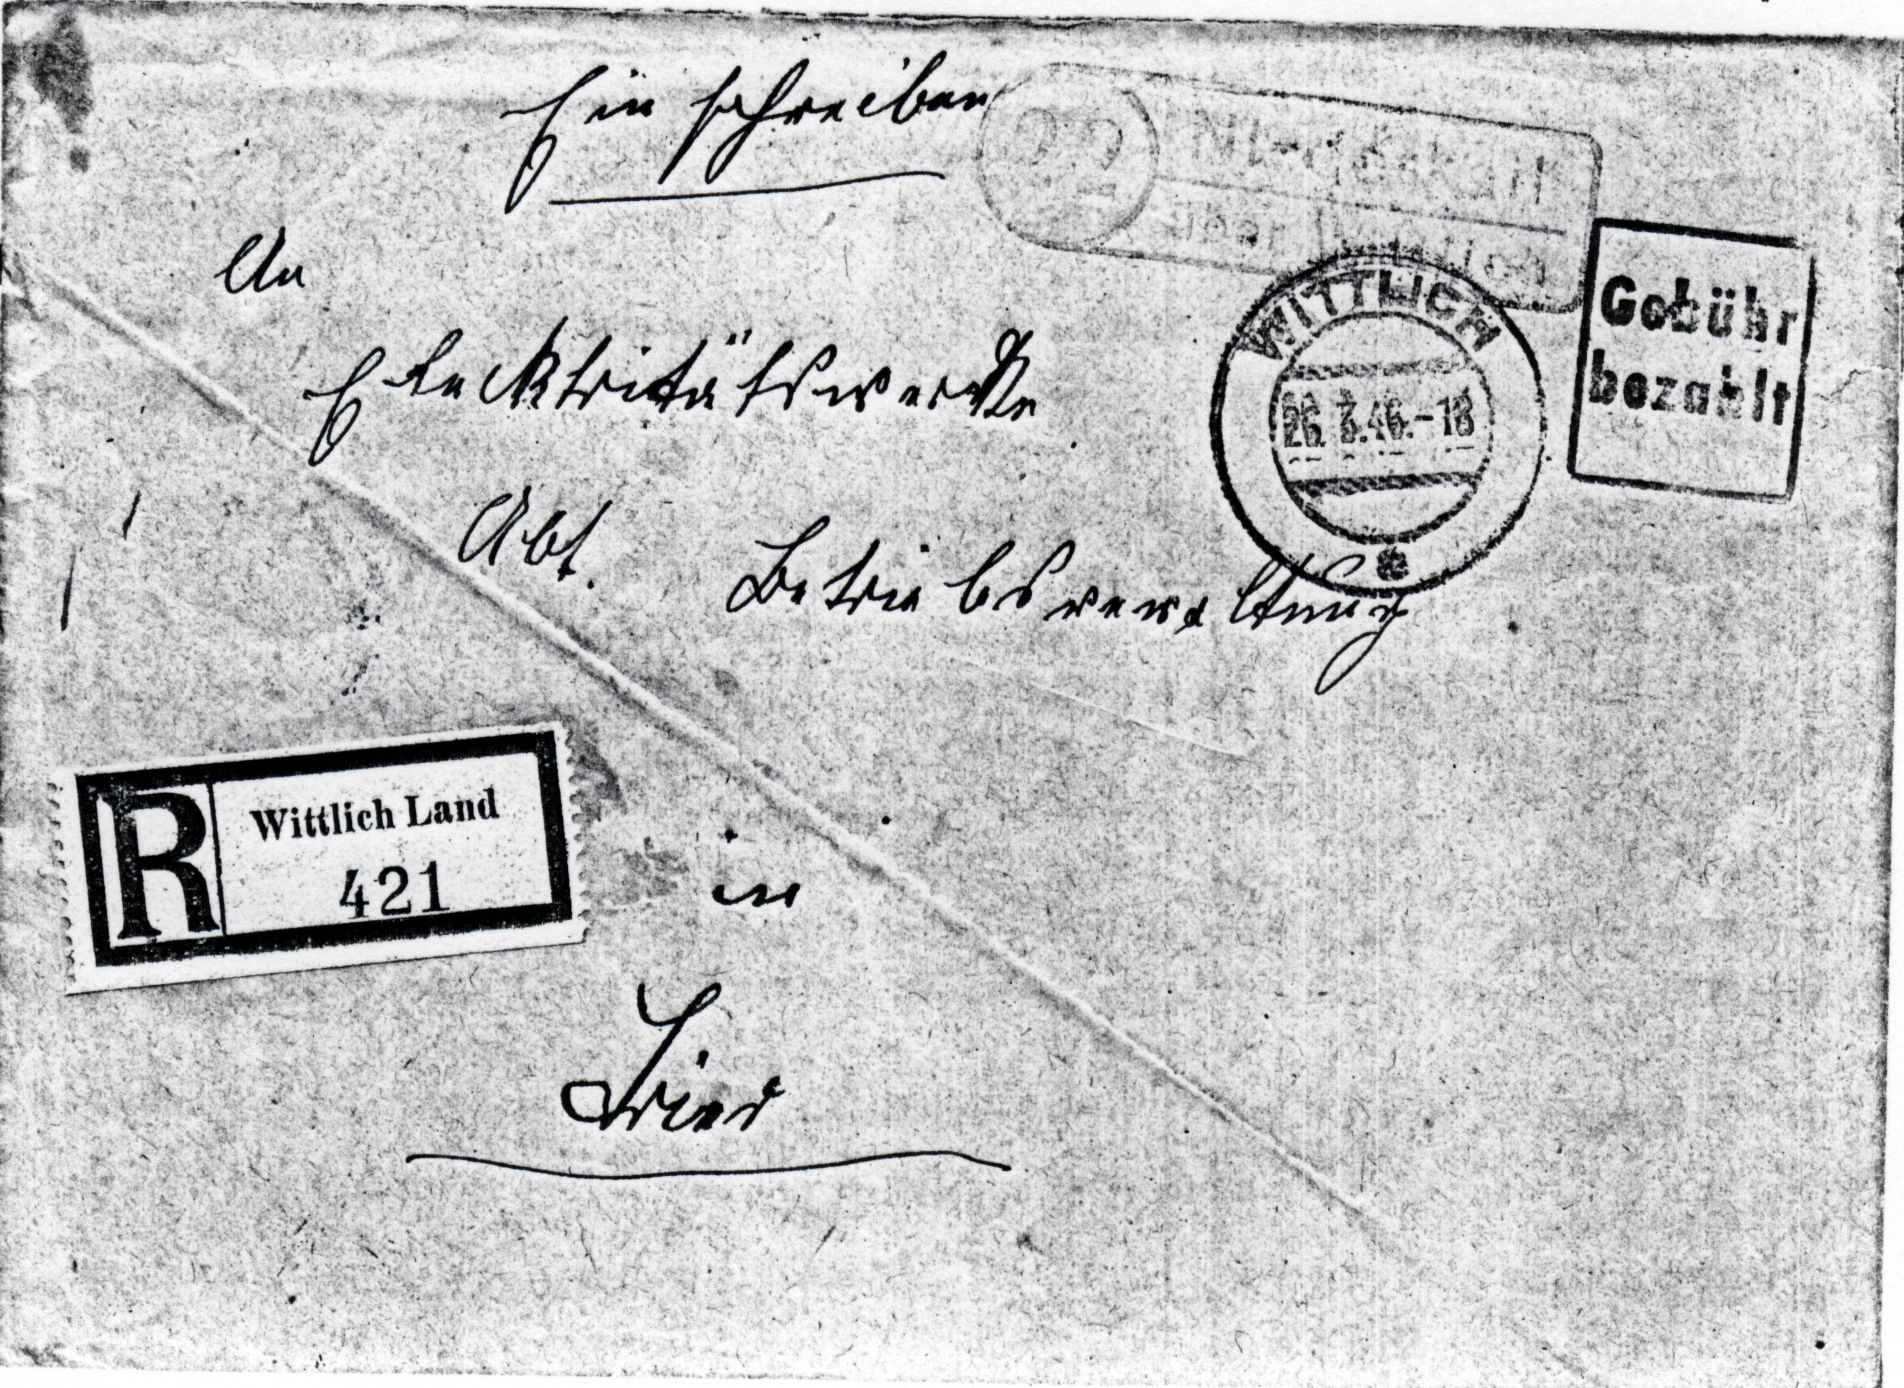 Einschreiben
22
über Wittlich
WITTLICH
26. 3.46.-18
a
Gebühr
bezahlt
An
Elecktritätswerke
Abt. Betriebsverwaltung
R Wittlich Land
421
in
Trier